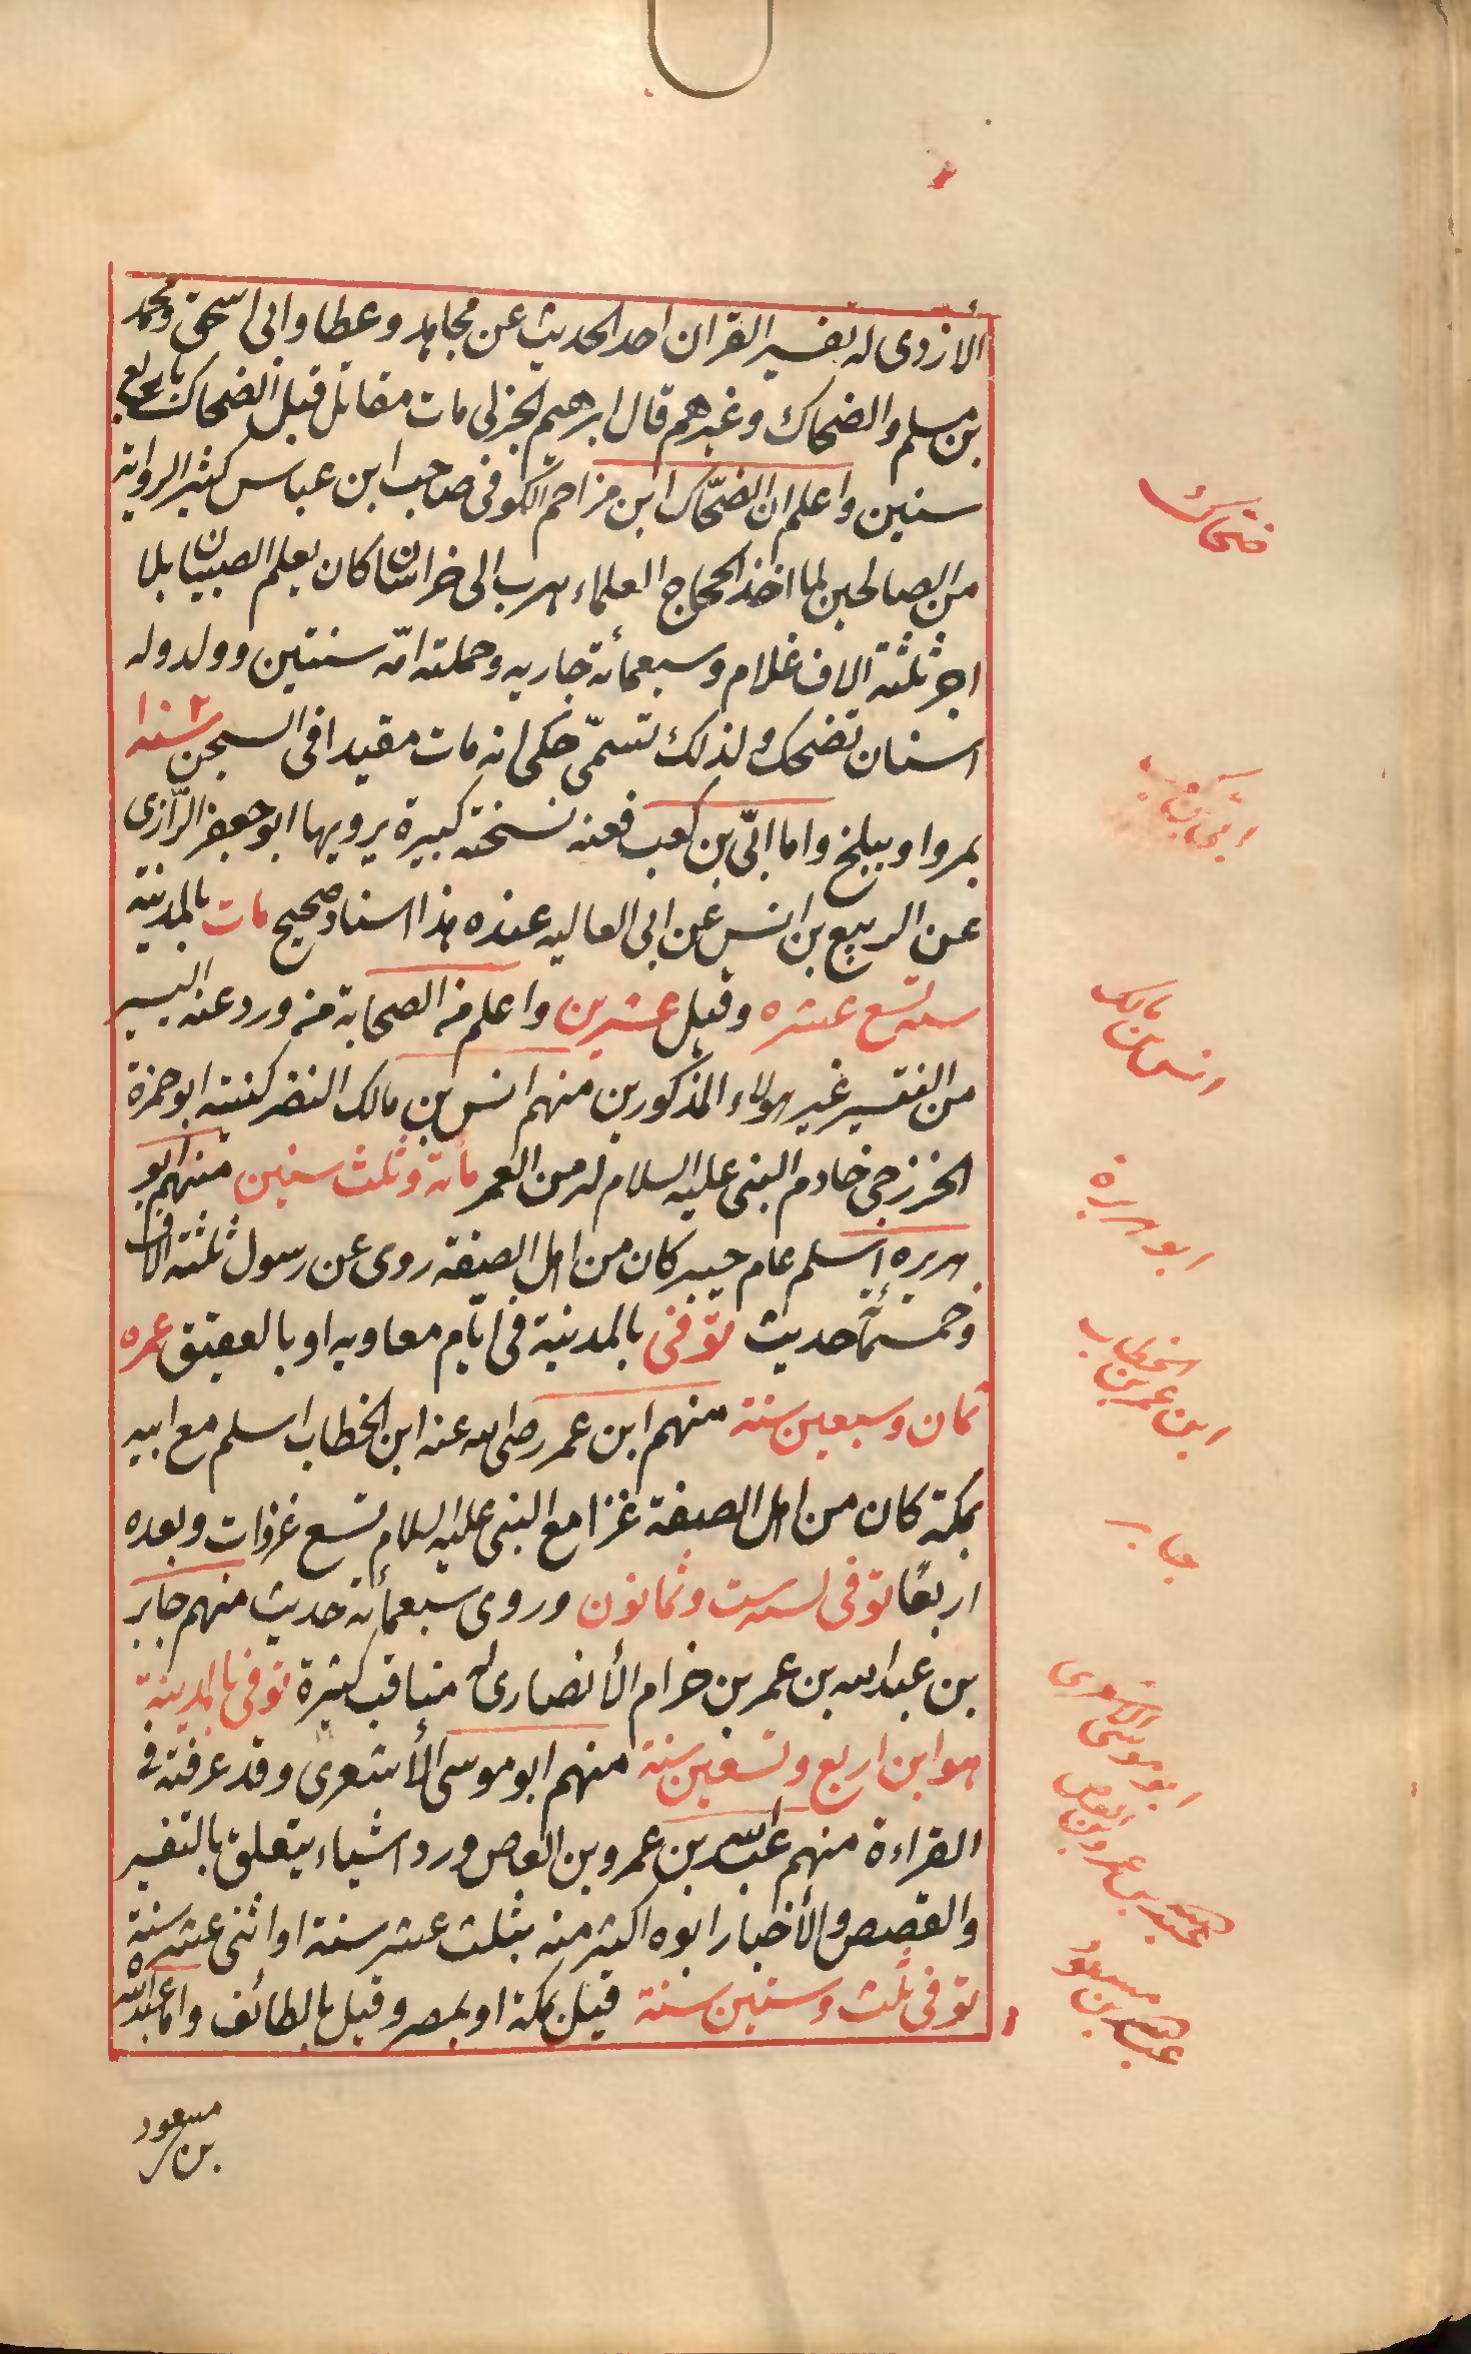 الأزدى له تفسير القران احد الحديث عن مجاهد وعطا وابى اسحق ومحمد
بن مسلم والضحاك وغيرهم قال ابرهيم الحزلى مات مقاتل قبل الضحاك باربع
سنين واعلم ان الضحّاك ابن مزاحم الكوفى صاحب ابن عباس كثير الرواية
من الصالحين لما اخذ الحجاج العلماء هرب الى خراسان كان يعلم الصبيان بلا
اجر ثلثة الاف غلام وسبعمائة جاريه وحملته امّه سنتين وولد وله
اسنان تضحك ولذلك تسمّى حكى انه مات مقيدا فى السجن سنه ١٠٢
بمروا وببلخ واما ابىّ بن كعب فعنه نسخة كبيرة يرويها ابو جعفر الرّازى
عن الربيع بن انس عن ابى العاليه عنده هذا اسناد صحيح مات بالمدينة
سنه تسع عشره وقيل عشرين واعلم من الصحابة من ورد عنه اليسير
من التفسير غير هولاء المذكورين منهم انس بن مالك النضر كنيته ابو حمزة
الخزرجى خادم النبى عليه السلام له من العمر مائة وثلث سنين منهم ابو
هريره اسلم عام خيبر كان من اهل الصيفة روى عن رسول ثلثة الاف
وخمسمائة حديث توفى بالمدينة فى ايّام معاويه او بالعقيق عمره
ثمان وسبعين سنة منهم ابن عمر رضى الله عنه ابن الخطاب اسلم مع ابيه
بمكة كان من اهل الصيفة غزا مع النبى عليه السلام تسع غزوات وبعده
اربعًا توفى لسنه ست وثمانون وروى سبعمائة حديث منهم جابر
بن عبد الله بن عمر بن خرام الأنصارى له مناقب كثيرة توفى بالمدينة
هو ابن اربع وتسعين سنة منهم ابو موسى الأشعرى وقد عرفته فى
القراءة منهم عبد الله بن عمرو بن العاص ورد اشياء يتعلق بالتفسير
والقصص والأخبار ابوه اكبر منه بثلث عشر سنة او اثنى عشره سنة
توفى ثلث وستين سنة قيل بمكة او بمصر وقيل بالطائف واما عبد الله
بن مسعود
ضحاك
ابى بن كعب
انس بن مالك
ابو هريرة
ابن عمر بن الخطاب
جابر
ابو موسى الاشعرى
عبد الله بن عمرو بن العاص
عبد الله بن مسعود